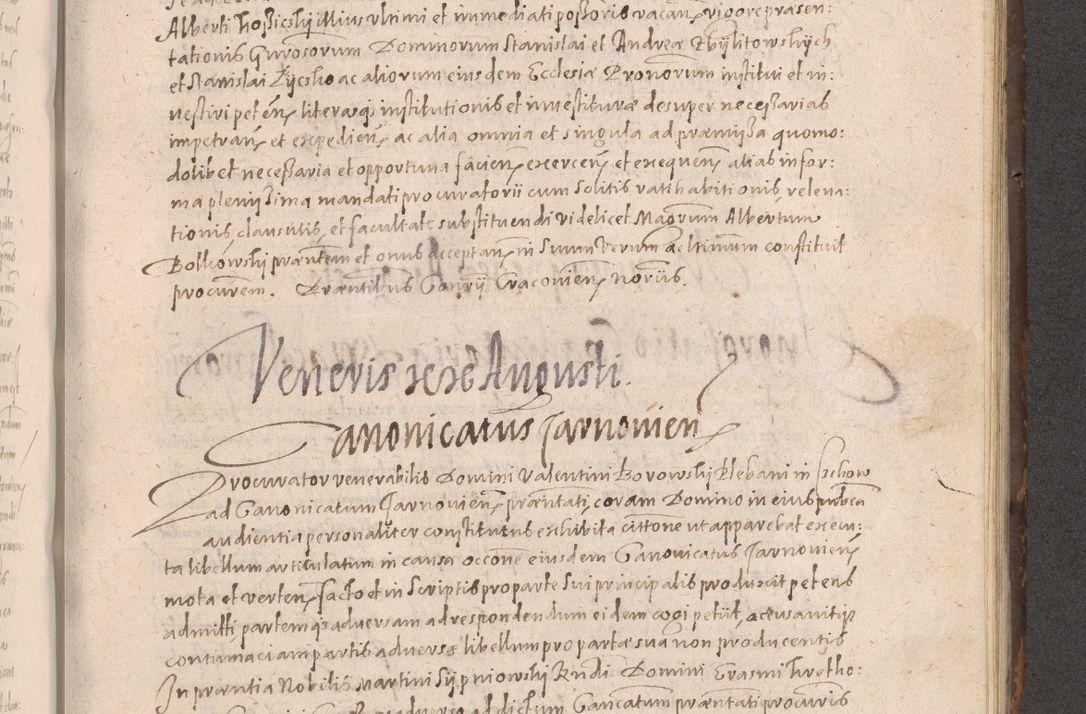 Alberti Hossiczky illius ultimi et immediati possoris vacan. vigore præsen:
tationis Gnrosorum Dominorum Stanislai et Andreæ Zbylitowskych
et Stanislai Życsko ac aliorum eiusdem Ecclesiæ Pronorum institui et in:
vestiri peten. literasq; institutionis et investituræ desuper necessarias
impetran. et expedien. ac alia omnia et singula ad præmissa quomo:
dolibet necessaria et opportuna facien. exercen. et exequen. alias in for:
ma plenissima mandati procuratorii cum solitis ratihabitionis releua:
tionis clausulis, et facultate substituendi videlicet Magrum Albertum
Bolkowsky præntem et onus acceptan. in Suum Verum ac ltimum constituit
procurem. Præntibus Consrij Cracovien. noriis.
Veneris xxx Augusti.
Canonicatus Tarnovien.
Procurator venerabilis Domini Valentini Borowsky Plebani in
ad Canonicatum Tarnovien. præntati, coram Domino in eius publica
audientia personaliter constitutus exhibita cittone ut apparebat execu:
ta libellum articulatum in causa occone eiusdem Canonicatus Tarnovien.
mota et verten. facto et in scriptis pro parte sui principalis produxit petens
admitti partemqs adversam ad respondendum eidem cogi petiit, accusavitqs
contumaciam partis adversæ libellum pro parte sua non producentis
In præntia Nobilis Martini Sijpniowsky Rndi Domini Erasmi Kretko:
ad dictum Canicatum præntati procuris